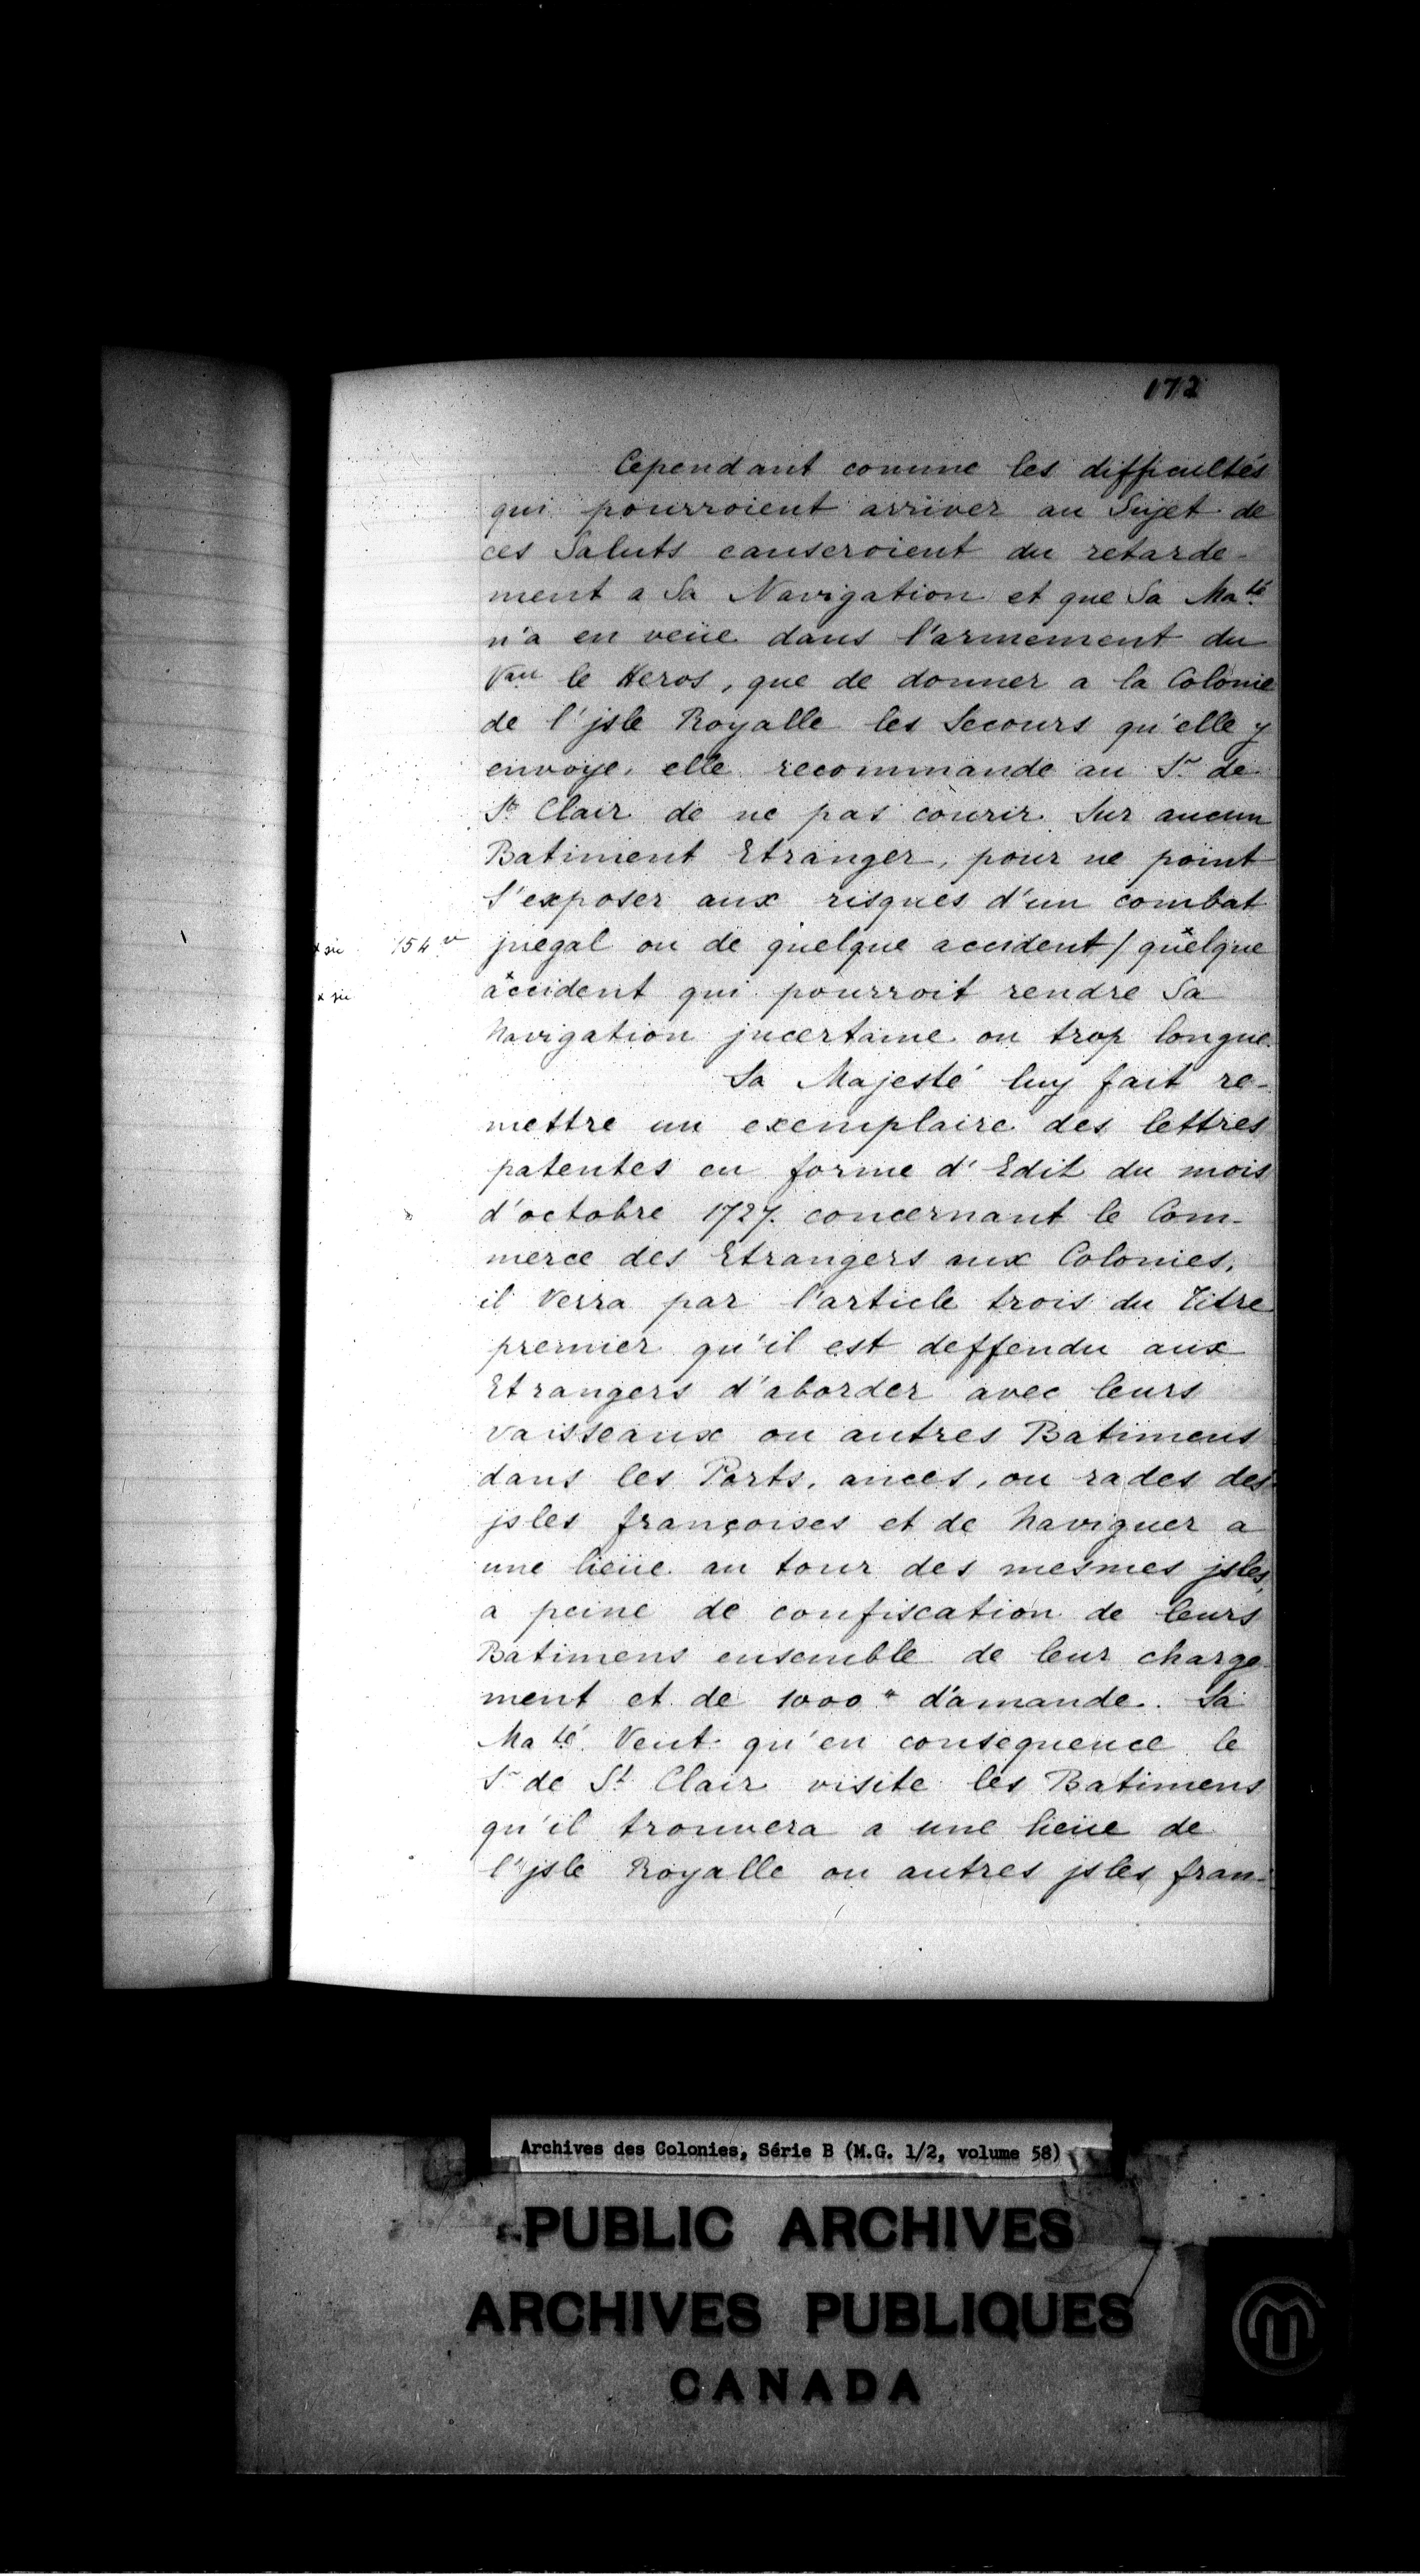 172
Cependant comme les difficultés
qui pourroient arriver au Sujet de
ces Saluts causeroient du retarde-
ment a Sa Navigation et que Sa Maté
n'a en veüe dans l'armement du
Vau le Heros, que de donner a la Colonie
de l'jsle Royalle les Secours qu'elle y
envoye, elle recommande au Sr de
St Clair de ne pas courir Sur aucun
Batiment Etranger, pour ne point
S'exposer aux risques d'un combat
x sic 154 v jnegal ou de quelque accident / quelque
x sic accident qui pourroit rendre Sa
Navigation jncertaine ou trop longue.
Sa Majesté luy fait re-
mettre un exemplaire des lettres
patentes en forme d'Edit du mois
d'octobre 1727. concernant le Com-
merce des Etrangers aux Colonies,
il Verra par l'article trois du Titre
premier qu'il est deffendu aux
Etrangers d'aborder avec leurs
vaisseaux ou autres Batimens
dans les Ports, ances, ou rades des
jsles françoises et de Naviguer a
une lieüe au tour des mesmes jsles,
a peine de confiscation de leurs
Batimens ensemble de leur charge-
ment et de 1000 # d'amande. Sa
Maté Veut qu'en consequence le
Sr de St Clair visite les Batimens
qu'il trouvera a une lieüe de
l'jsle Royalle ou autres jsles fran-
Archives des Colonies, Série B (M.G. 1/2, volume 58)
PUBLIC ARCHIVES
ARCHIVES PUBLIQUES
CANADA